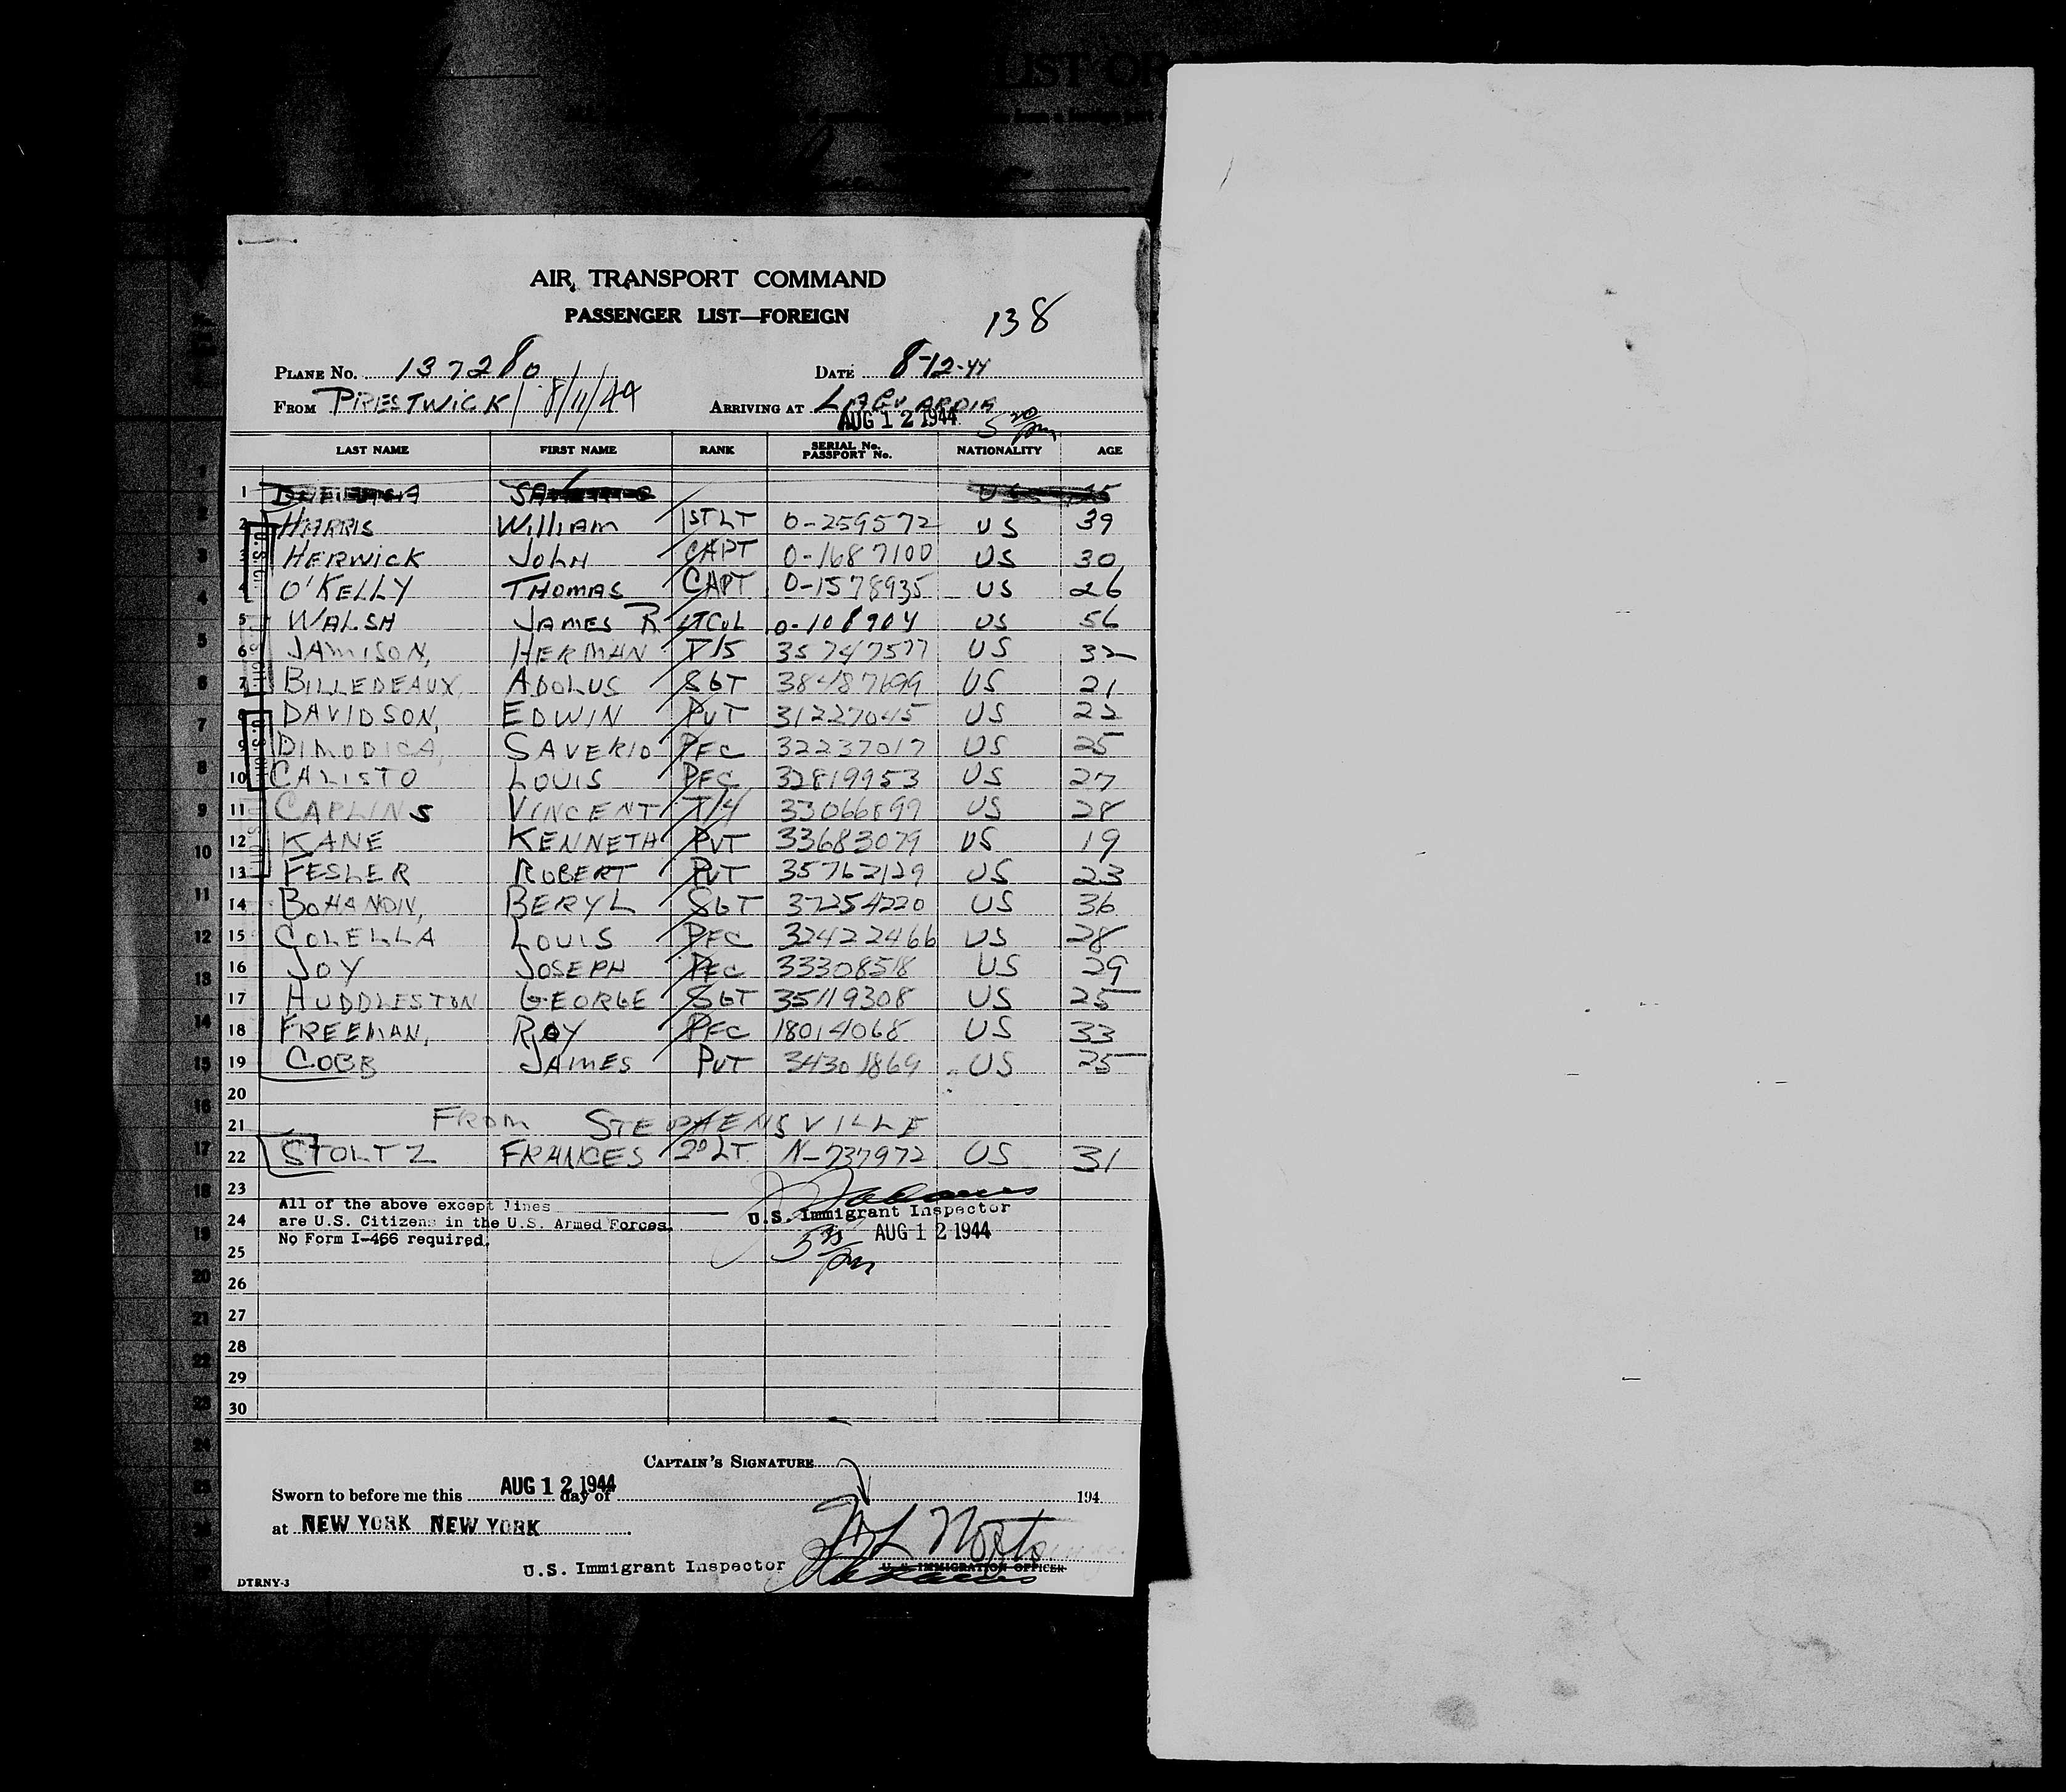 LIST OR
AIR TRANSPORT COMMAND
PASSENGER LIST—FOREIGN
138
PLANE No. 137280 DATE 8-12-44
FROM PRESTWICK / 8/11/44 ARRIVING AT LAGUARDIA
AUG 12 1944 5 20 pm
LAST NAME FIRST NAME RANK SERIAL No. PASSPORT No. NATIONALITY AGE
1 US 25
2 HARRIS WILLIAM 1ST LT O-259572 US 39
3 HERWICK JOHN CAPT O-1687100 US 30
4 O'KELLY THOMAS CAPT O-1578935 US 26
5 WALSH JAMES R LT COL O-108904 US 56
6 JAMISON, HERMAN T/5 35747577 US 32
7 BILLEDEAUX, ADOLUS SGT 38487699 US 21
8 DAVIDSON, EDWIN PVT 31227045 US 25
9 DIMODICA, SAVERIO PFC 32237017 US 25
10 CALISTO LOUIS PFC 32819953 US 27
11 CAPLINS VINCENT T/4 33066899 US 28
12 KANE KENNETH PVT 33683079 US 19
13 FESLER ROBERT PVT 35762129 US 23
14 BOHANON, BERYL SGT 37254220 US 36
15 COLELLA LOUIS PFC 32422466 US 28
16 JOY JOSEPH PFC 33308518 US 29
17 HUDDLESTON GEORGE SGT 35119308 US 25
18 FREEMAN, ROY PFC 18014068 US 33
19 COBB JAMES PVT 34301869 US 25
20
21 FROM STEPHENSVILLE
22 STOLTZ FRANCES 2D LT. N-737972 US 31
23
All of the above except lines
24 are U.S. Citizens in the U.S. Armed Forces. U.S. Immigrant Inspector
No Form I-466 required. AUG 12 1944
25 pm
26
27
28
29
30
CAPTAIN'S SIGNATURE
Sworn to before me this AUG 12 1944 day of 194
at NEW YORK NEW YORK
U.S. Immigrant Inspector U. S. IMMIGRATION OFFICER
DTRNY-3